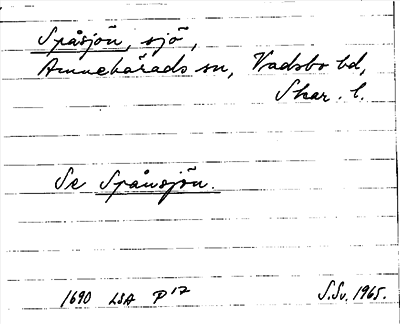 Spåsjön, sjö,
Amnehärads sn, Vadsbo hd,
Skar. l.
Se Spånsjön.
1690 LSA P17 S.Sv. 1965.